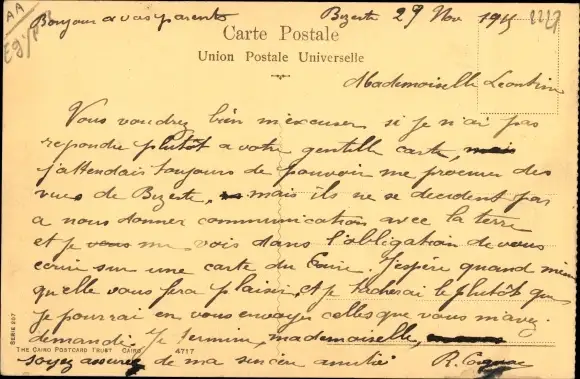 AA
Bonjour a vos parents
Bizerte 29 Nov 1915
Carte Postale
Union Postale Universelle
Mademoiselle Leontine
Vous voudrez bien m'excuser si je n'ai pas
repondu plutôt a votre gentille carte, mais
j'attendais toujours de pouvoir me procurer des
vues de Bizerte, mais ils ne se decident pas
a nous donner communication avec la terre
et je vous me vois dans l'obligation de vous
ecrire sur une carte du Caire. J'espère quand meme
qu'elle vous fera plaisir, et je tacherai le plutôt que
je pourrai en vous envoyer celles que vous m'avez
demandé. Je termine, mademoiselle,
soyez assurée de ma sincère amitié
R. Cognac
SERIE 607
THE CAIRO POSTCARD TRUST CAIRO
4717